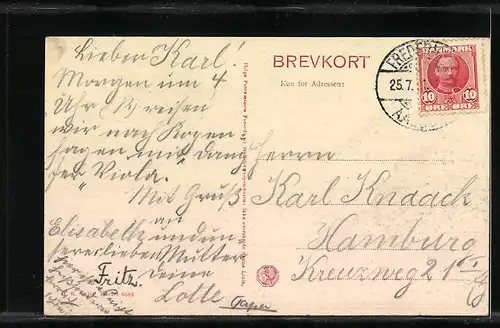 Lieber Karl!
Morgen um 4
Uhr reisen
wir nach Kopen
hagen mit Damp
fer "Viola".
Mit Gruß
an
Elisabeth und un
sere liebe Mutter
deine
Lotte
Fritz.
BREVKORT
Kun for Adressen:
25.7.
DANMARK
10 10
ØRE ØRE
Herrn
Karl Knaack
Hamburg
Kreuzweg 21